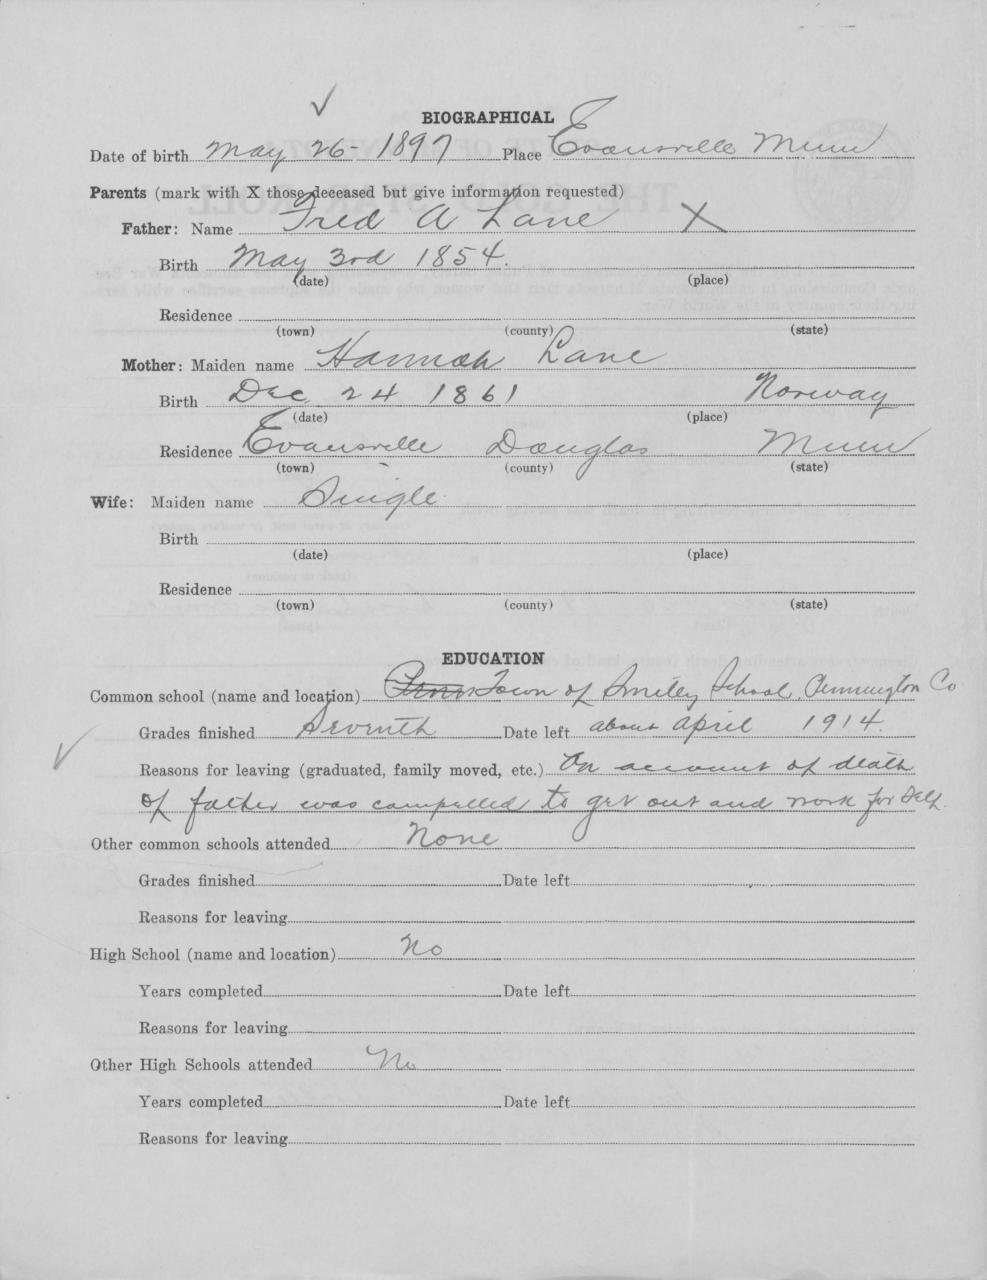 BIOGRAPHICAL
Date of birth May 26- 1897 Place Evansville Minn
Parents (mark with X those deceased but give information requested)
Father: Name Fred A Lane X
Birth May 3rd 1854.
(date) (place)
Residence
(town) (county) (state)
Mother: Maiden name Hannah Lane
Birth Dec 24 1861 Norway
(date) (place)
Residence Evansville Douglas Minn
(town) (county) (state)
Wife: Maiden name Single
Birth
(date) (place)
Residence
(town) (county) (state)
EDUCATION
Common school (name and location) Town of Smiley School, Pennington Co
Grades finished Seventh Date left about April 1914.
Reasons for leaving (graduated, family moved, etc.) On account of death
of father was compelled to get out and work for self.
Other common schools attended None
Grades finished Date left
Reasons for leaving
High School (name and location) No
Years completed Date left
Reasons for leaving
Other High Schools attended No
Years completed Date left
Reasons for leaving